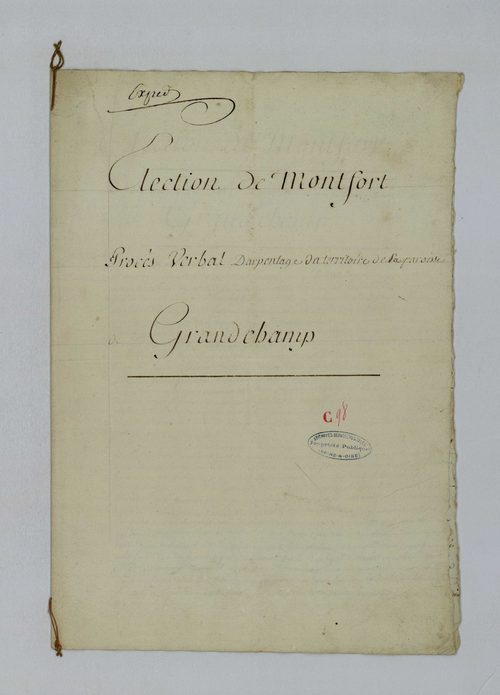 Exped
Election de Montfort
Procès Verbal Darpentage du territoire de la paroisse
de
Grandchamp
C 98
ARCHIVES DÉPARTEMENTALES
Propriété Publique
SEINE & OISE